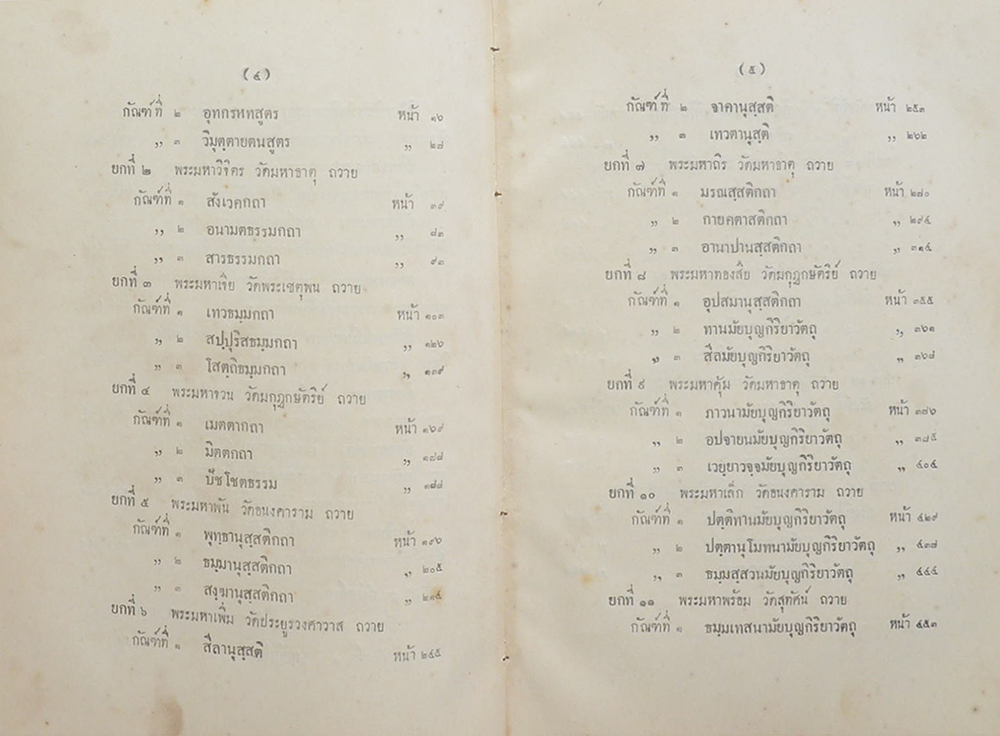 (๔)
กัณฑ์ที่ ๒ อุทกรหทสูตร หน้า ๑๖
,, ๓ วิมุตฺตายตนสูตร ,, ๒๗
ยกที่ ๒ พระมหาวิจิตร วัดมหาธาตุ ถวาย
กัณฑ์ที่ ๑ สังเวคกถา หน้า ๓๙
,, ๒ อนามตธรรมกถา ,, ๘๓
,, ๓ สารธรรมกถา ,, ๙๓
ยกที่ ๓ พระมหาเจีย วัดพระเชตุพน ถวาย
กัณฑ์ที่ ๑ เทวธมฺมกถา หน้า ๑๐๓
,, ๒ สปฺปุริสธมฺมกถา ,, ๑๒๖
,, ๓ โสตฺถิธมฺมกถา ,, ๑๓๙
ยกที่ ๔ พระมหาชวน วัดมกุฎกษัตริย์ ถวาย
กัณฑ์ที่ ๑ เมตตากถา หน้า ๑๖๙
,, ๒ มิตตกถา ,, ๑๗๘
,, ๓ ปัชโชตธรรม ,, ๑๘๘
ยกที่ ๕ พระมหาพัน วัดอนงคาราม ถวาย
กัณฑ์ที่ ๑ พุทฺธานุสฺสติกถา หน้า ๑๙๖
,, ๒ ธมฺมานุสฺสติกถา ,, ๒๐๕
,, ๓ สงฺฆานุสฺสติกถา ,, ๒๑๕
ยกที่ ๖ พระมหาเพิ่ม วัดประยูรวงศาวาส ถวาย
กัณฑ์ที่ ๑ สีลานุสฺสติ หน้า ๒๔๕
(๕)
กัณฑ์ที่ ๒ จาคานุสฺสติ หน้า ๒๕๓
,, ๓ เทวตานุสฺติ ,, ๒๖๒
ยกที่ ๗ พระมหาถิร วัดมหาธาตุ ถวาย
กัณฑ์ที่ ๑ มรณสฺสติกถา หน้า ๒๘๐
,, ๒ กายคตาสติกถา ,, ๒๙๔
,, ๓ อานาปานสฺสติกถา ,, ๓๑๔
ยกที่ ๘ พระมหาทองสืย วัดมกุฎกษัตริย์ ถวาย
กัณฑ์ที่ ๑ อุปสมานุสฺสติกถา หน้า ๓๕๕
,, ๒ ทานมัยบุญกิริยาวัตถุ ,, ๓๖๑
,, ๓ สีลมัยบุญกิริยาวัตถุ ,, ๓๖๘
ยกที่ ๙ พระมหาคุ้ม วัดมหาธาตุ ถวาย
กัณฑ์ที่ ๑ ภาวนามัยบุญกิริยาวัตถุ หน้า ๓๗๖
,, ๒ อปจายนมัยบุญกิริยาวัตถุ ,, ๓๘๕
,, ๓ เวยฺยาวจฺจมัยบุญกิริยาวัตถุ ,, ๔๐๔
ยกที่ ๑๐ พระมหาเล็ก วัดอนงคาราม ถวาย
กัณฑ์ที่ ๑ ปตฺติทานมัยบุญกิริยาวัตถุ หน้า ๔๒๙
,, ๒ ปตฺตานุโมทนามัยบุญกิริยาวัตถุ ,, ๔๓๗
,, ๓ ธมฺมสฺสวนมัยบุญกิริยาวัตถุ ,, ๔๔๔
ยกที่ ๑๑ พระมหาพร้อม วัดสุทัศน์ ถวาย
กัณฑ์ที่ ๑ ธมฺมเทสนามัยบุญกิริยาวัตถุ หน้า ๔๕๓